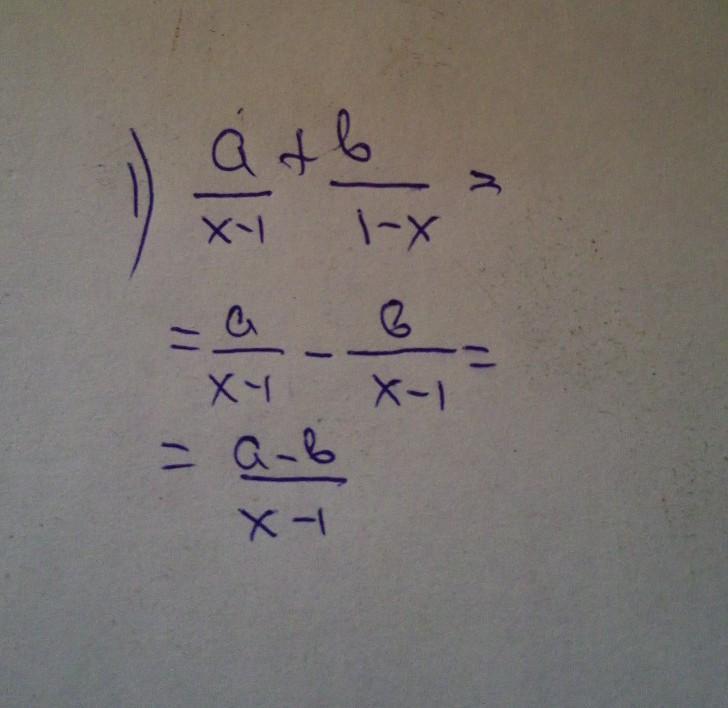 1) a/(x-1) + b/(1-x) =
= a/(x-1) - b/(x-1) =
= (a-b)/(x-1)